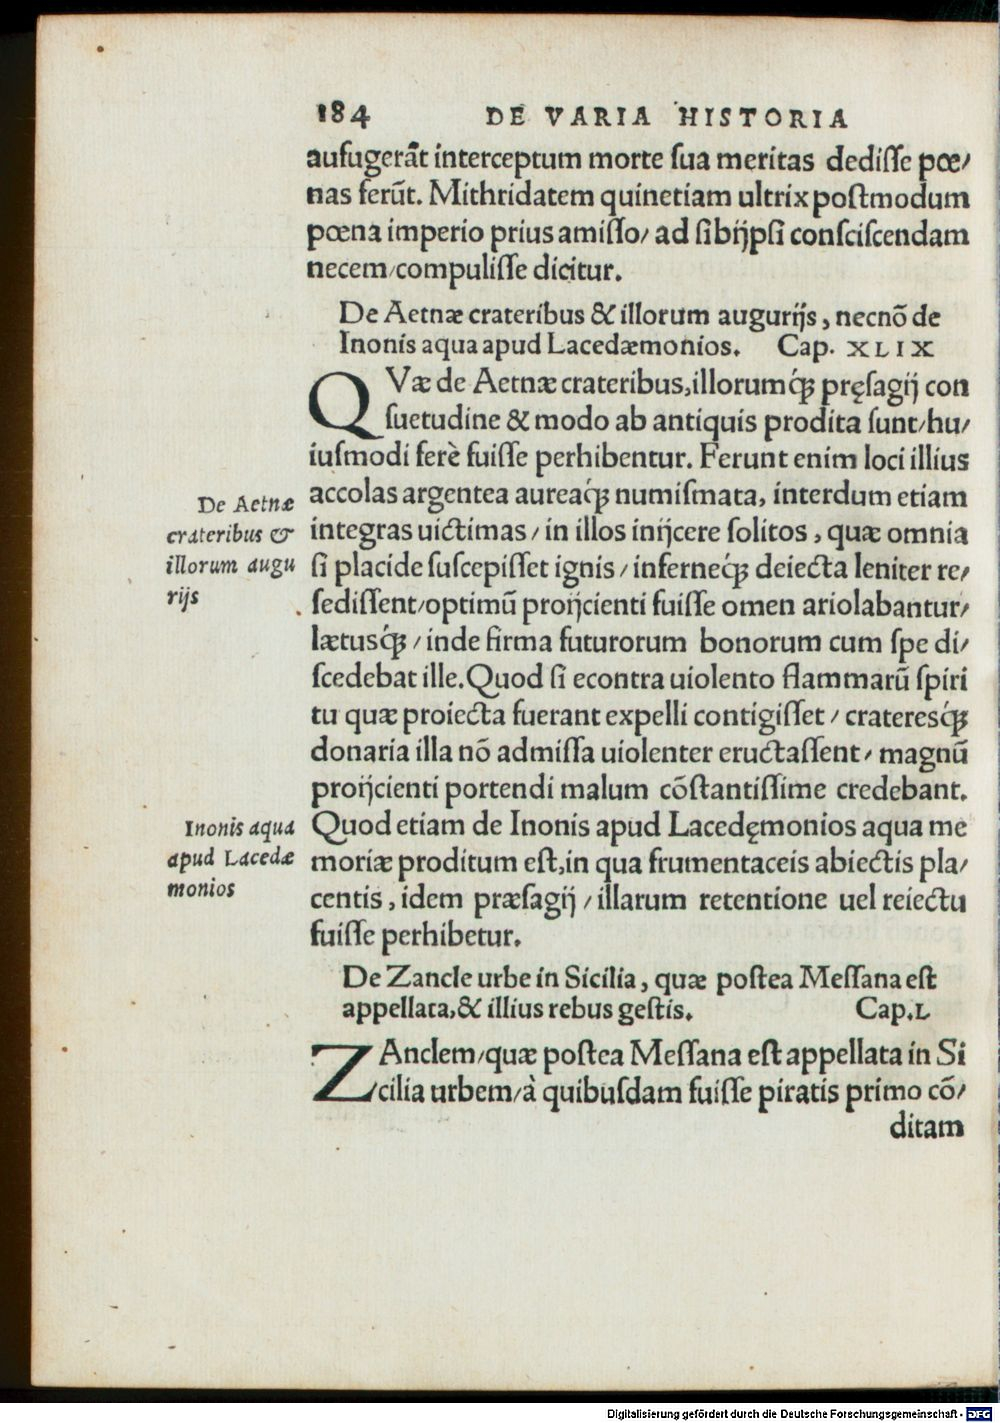 184 DE VARIA HISTORIA
aufugerãt interceptum morte ſua meritas dediſſe pœ/
nas ferũt. Mithridatem quinetiam ultrix poſtmodum
pœna imperio prius amiſſo/ ad ſibĳpſi conſciſcendam
necem/compuliſſe dicitur.
De Aetnæ crateribus & illorum augurĳs, necnõ de
Inonis aqua apud Lacedæmonios. Cap. XLIX
QVæ de Aetnæ crateribus,illorumq́; pręſagĳ con
ſuetudine & modo ab antiquis prodita ſunt/hu/
iuſmodi ferè fuiſſe perhibentur. Ferunt enim loci illius
accolas argentea aureaq́; numiſmata, interdum etiam
integras uictimas/ in illos inĳcere ſolitos, quæ omnia
ſi placide ſuſcepiſſet ignis/ inferneq́; deiecta leniter re/
ſediſſent/optimũ proĳcienti fuiſſe omen ariolabantur/
lætusq́;/ inde firma futurorum bonorum cum ſpe di/
ſcedebat ille. Quod ſi econtra uiolento flammarũ ſpiri
tu quæ proiecta fuerant expelli contigiſſet/ crateresq́;
donaria illa nõ admiſſa uiolenter eructaſſent/ magnũ
proĳcienti portendi malum cõſtantiſſime credebant.
Quod etiam de Inonis apud Lacedęmonios aqua me
moriæ proditum eſt,in qua frumentaceis abiectis pla/
centis, idem præſagĳ/ illarum retentione uel reiectu
fuiſſe perhibetur.
De Aetnæ
crateribus &
illorum augu
rĳs
Inonis aqua
apud Lacedæ
monios
De Zancle urbe in Sicilia, quæ poſtea Meſſana eſt
appellata,& illius rebus geſtis. Cap.L
ZAnclem/quæ poſtea Meſſana eſt appellata in Si
cilia urbem/à quibuſdam fuiſſe piratis primo cõ/
ditam
Digitalisierung gefördert durch die Deutsche Forschungsgemeinschaft - DFG